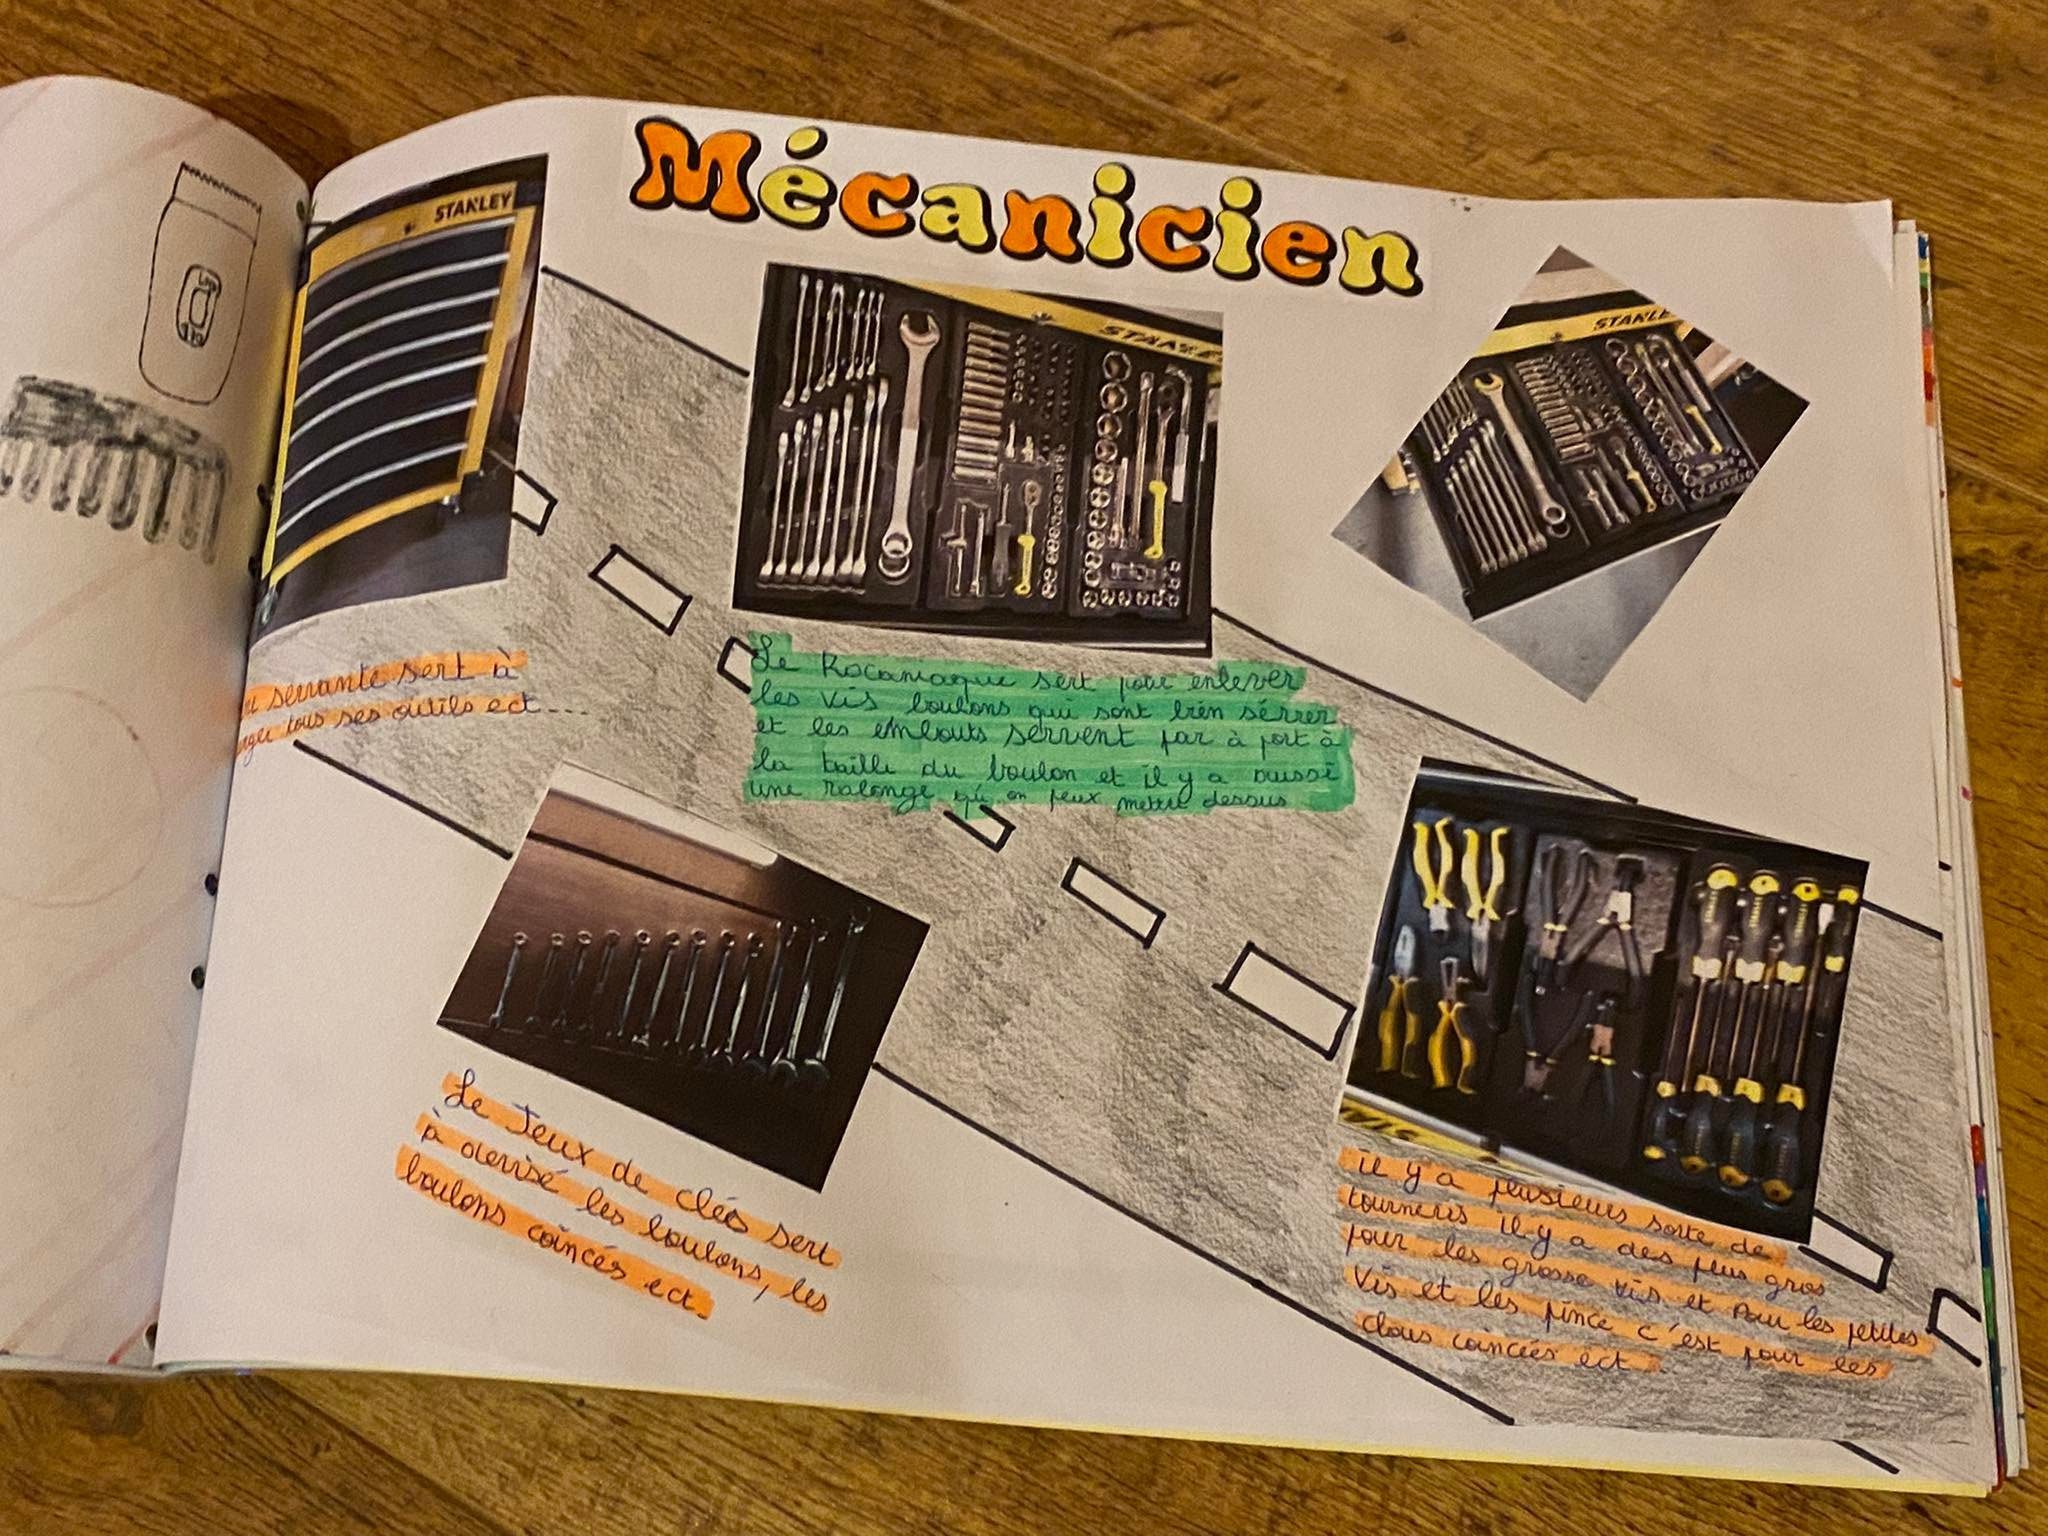 Mécanicien
STANLEY
STANLEY
STANLE
serrante sert à
tous ses outils ect....
Le Rocaniaque sert pour enlever
les vis boulons qui sont bien sérrer
et les embouts servent par à port à
la taille du boulon et il y a aussi
une ralonge qu'on peux metre dessus
Le Jeux de clés sert
à devisé les boulons, les
boulons coincés ect.
il y a plusieurs sorte de
tourneris il y a des plus gros
pour les grosse vis et pour les petites
vis et les pince c'est pour les
clous coincées ect.